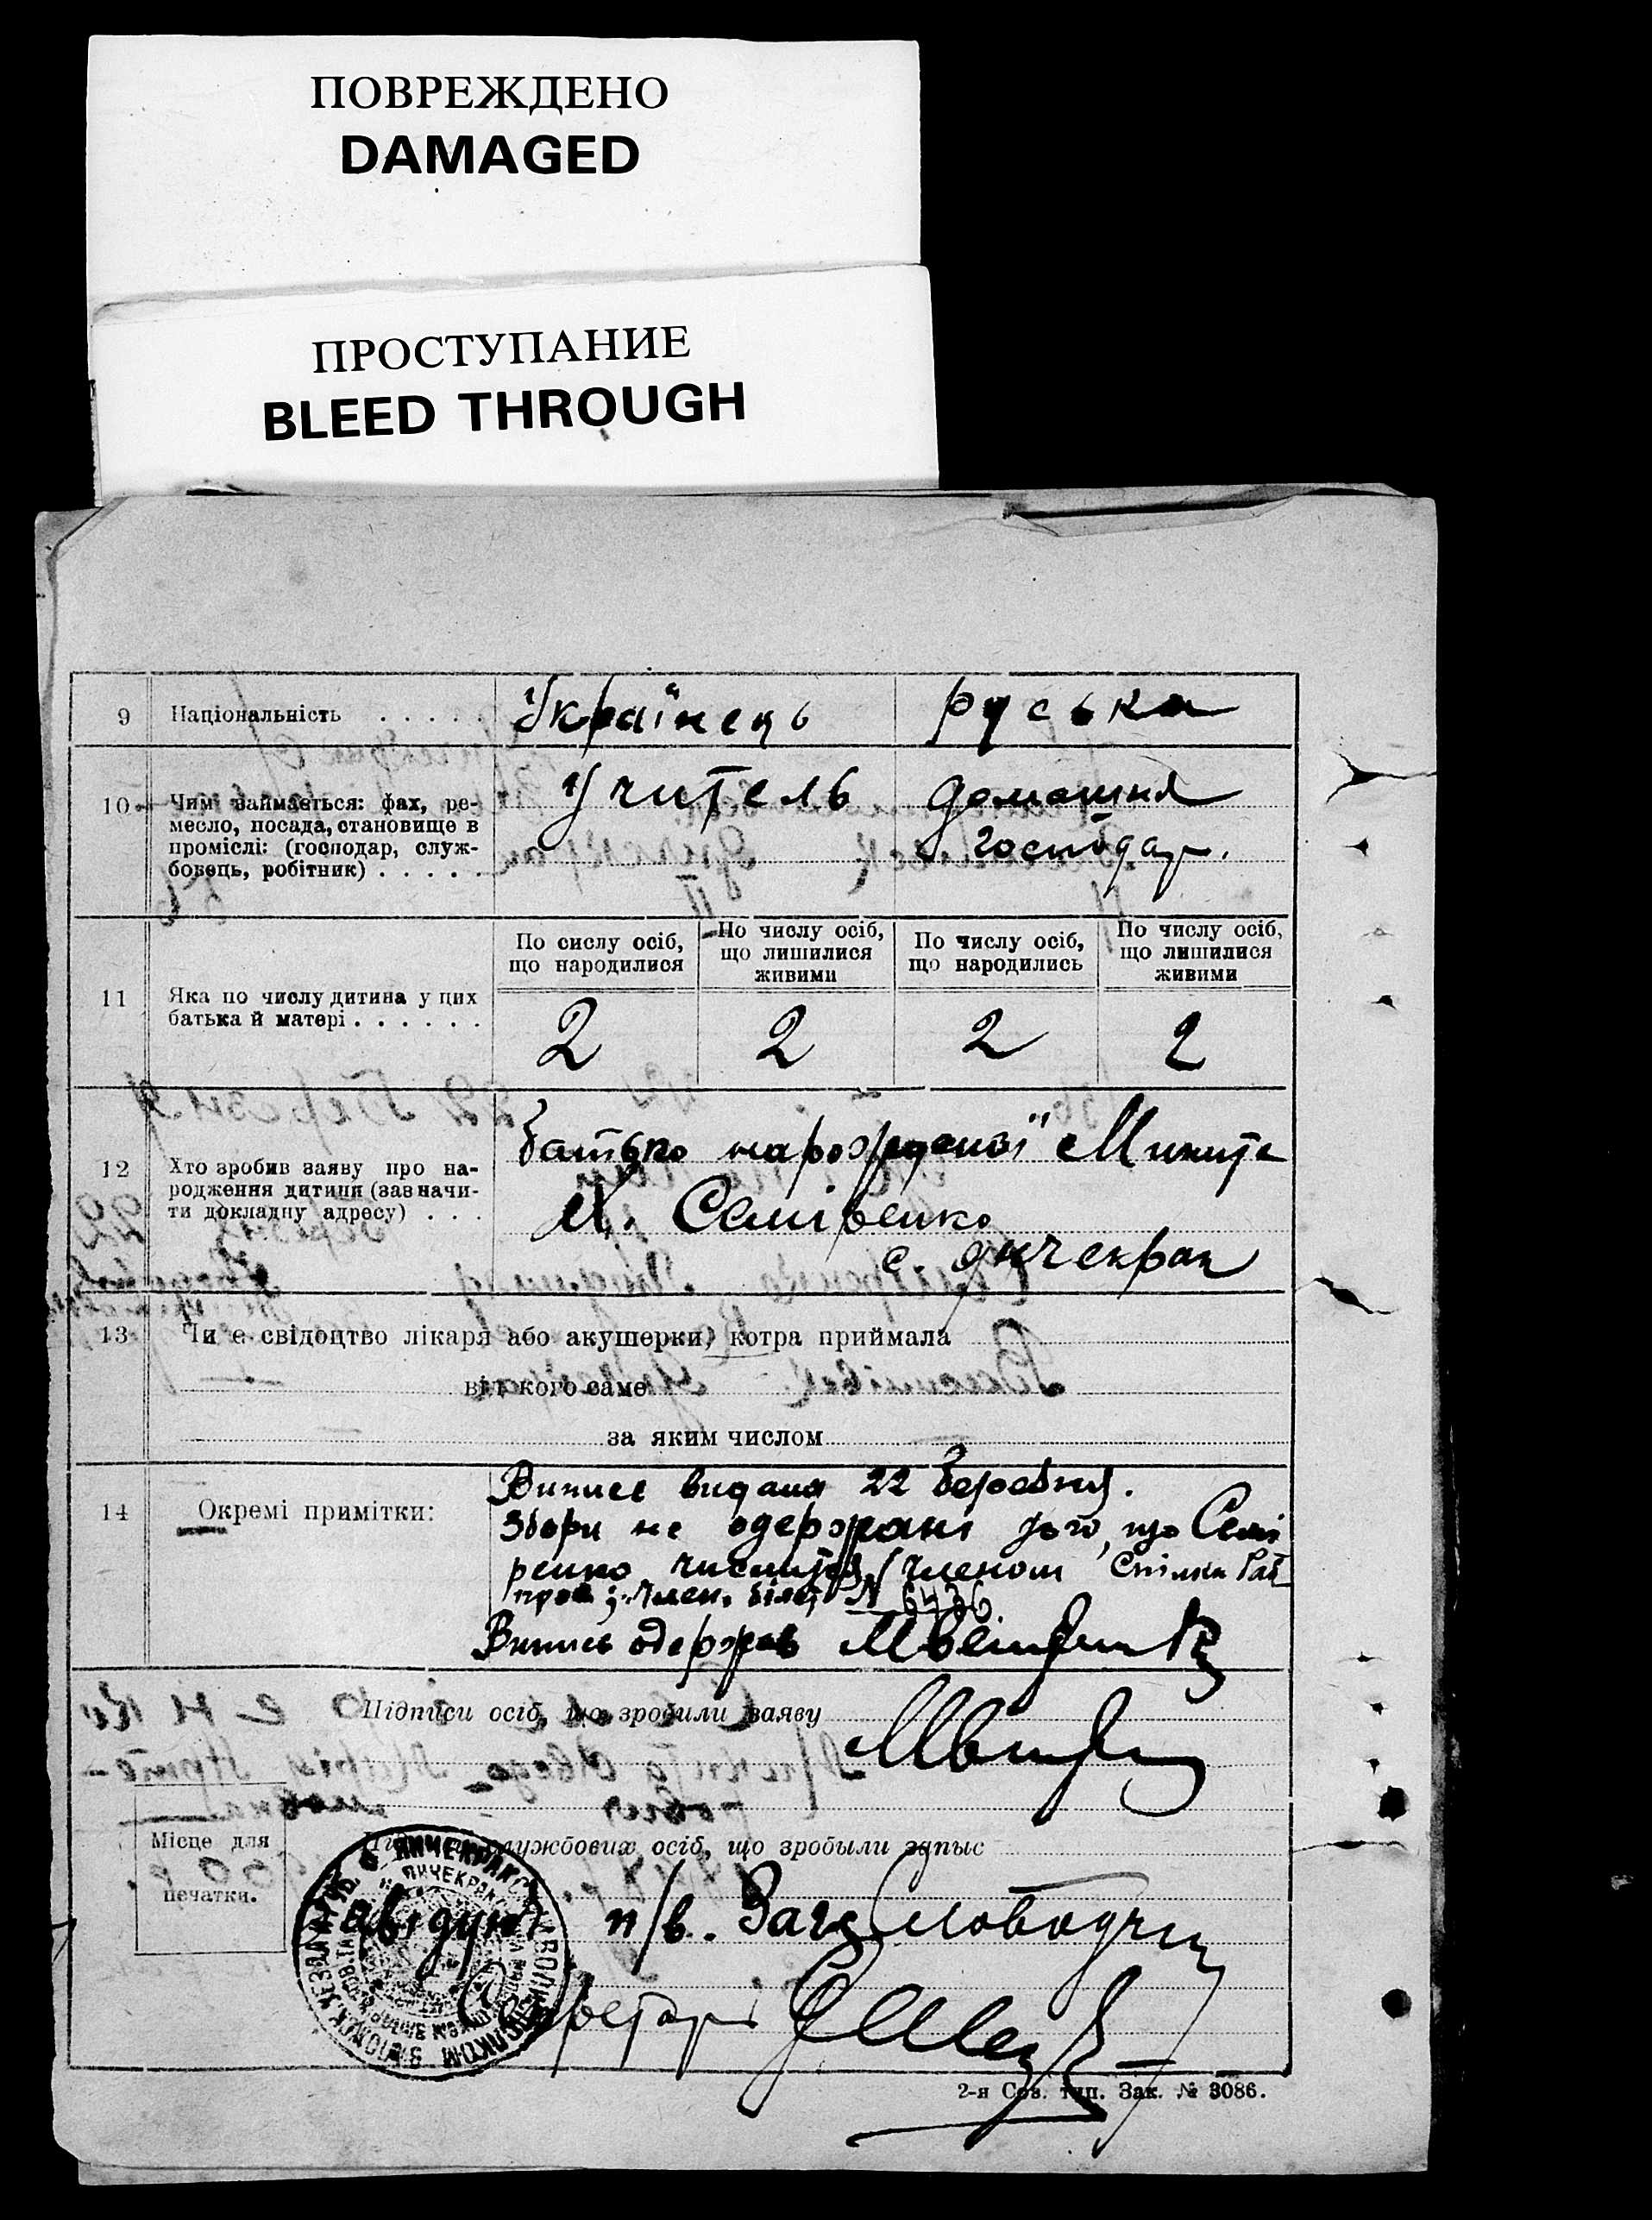 ПОВРЕЖДЕНО
DAMAGED
ПРОСТУПАНИЕ
BLEED THROUGH
9 Національність . . . . . Українець руська
10 Чим займається: фах, ре-
месло, посада, становище в
проміслі: (господар, служ-
бовець, робітник) . . . . .
Учитель
домашня
господар.
11 Яка по числу дитина у цих
батька й матері . . . . . .
По сислу осіб,
що народилися
По числу осіб,
що лишилися
живими
По числу осіб,
що народились
По числу осіб,
що лишилися
живими
2 2 2 2
12 Хто зробив заяву про на-
родження дитини (зазначи-
ти докладну адресу) . . .
батько нарожденої Микита
Х. Семіренко
с. Янчекрак
13 Чи є свідоцтво лікаря або акушерки, котра приймала
від кого саме
за яким числом
14 Окремі примітки:
Випись видана 22 березня.
Збори не одержані
ренко членом
член. білет №
Випись одержав
Підписи осіб, що зробили заяву
Місце для
печатки.
службових осіб, що зробыли запыс
п/в. Загс
Секретарь
2-я Сов. тип. Зак. № 3086.